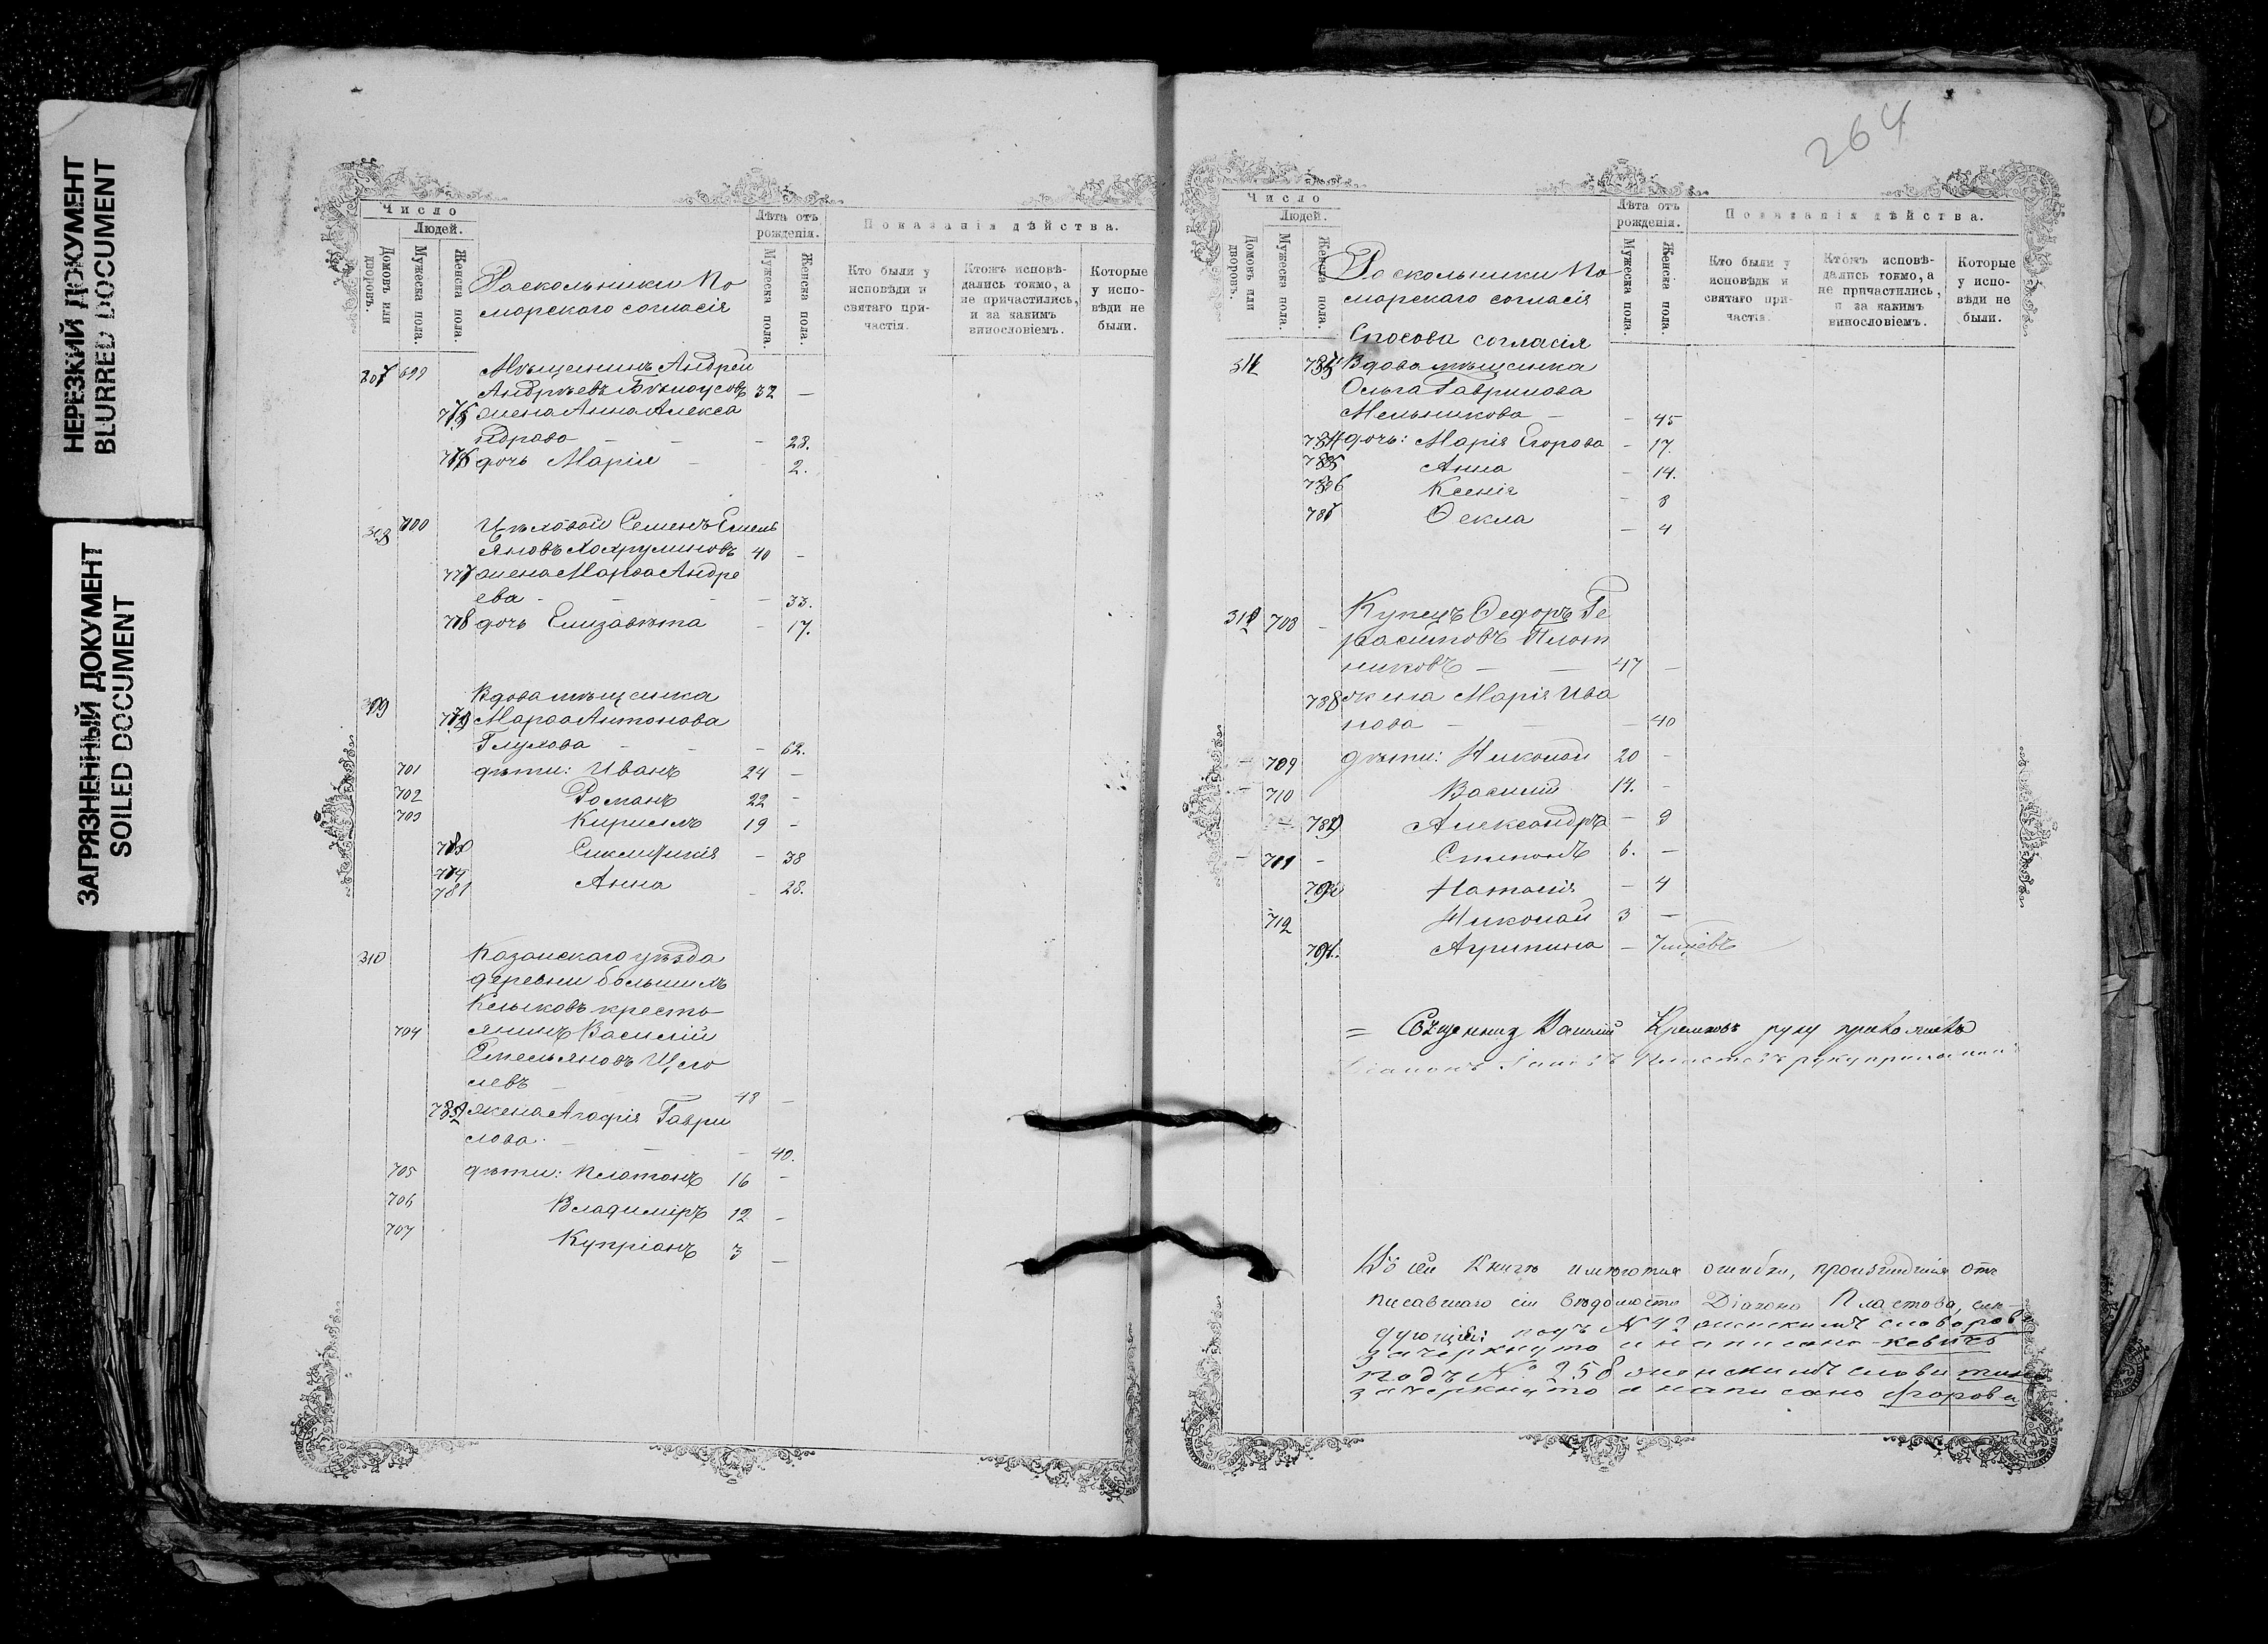 НЕРЕЗКИЙ ДОКУМЕНТ
BLURRED DOCUMENT
ЗАГРЯЗНЕННЫЙ ДОКУМЕНТ
SOILED DOCUMENT
Число
Людей.
Домовъ или дворовъ.
Мужеска пола.
Женска пола.
Раскольники По
морскаго согласія
Лѣта отъ рожденія.
Мужеска пола.
Женска пола.
Показанія дѣйства.
Кто были у исповѣди и святаго причастія.
Ктожъ исповѣдались токмо, а не причастились, и за какимъ винословіемъ.
Которые у исповѣди не были.
307 699 Мѣщанинъ Андрей
Андреевъ Бѣлоусовъ 32 —
775 жена Анна Алекса
ндрова — 28.
776 дочь Марія — 2.
308 700 Цѣховой Семенъ Емель
яновъ 40 —
777 жена Марѳа Андре
ева — 33.
778 дочь Елизавета — 17.
309 Вдова мѣщанка
779 Марѳа Антонова
Глухова — 62.
701 дѣти: Иванъ 24 —
702 Романъ 22 —
703 Кириллъ 19 —
780 — 38
781 Анна — 28.
310 Казанскаго уѣзда
деревни большихъ
Клыковъ кресть
704 янинъ Василій
Емельяновъ Щего
левъ 43 —
782 жена Агафія Гаври
лова — 40.
705 дѣти: Платонъ 16 —
706 Владиміръ 12 —
707 Купріанъ 3 —
264
Число
Людей.
Домовъ или дворовъ.
Мужеска пола.
Женска пола.
Раскольники По
морскаго согласія
Спасова согласія
Лѣта отъ рожденія.
Мужеска пола.
Женска пола.
Показанія дѣйства.
Кто были у исповѣди и святаго причастія.
Ктожъ исповѣдались токмо, а не причастились, и за какимъ винословіемъ.
Которые у исповѣди не были.
311 783 Вдова мѣщанка
Ольга Гаврилова
Мельникова — 45
784 дочь: Марія Егорова — 17.
785 Анна — 14.
786 Ксенія — 8
787 Ѳекла — 4
312 708 — Купецъ Ѳедоръ Ге
расимовъ Плот
никовъ — 47 —
788 жена Марія Ива
нова — 40
709 дѣти: Николай 20 —
710 Василий 14. —
789 Александръ — 9
711 — Степанъ 6. —
790 Наталія — 4
712 Николай 3 —
791. Агрипина — 7 мцевъ
= Священникъ Василий руку приложилъ
Діаконъ Пластовъ руку приложилъ
Въ сей Книгѣ имѣются ошибки, происшедшія отъ
писавшаго сіи вѣдомости Діакона Пластова, слѣ-
дующія: подъ № 42 женскимъ слово рова
зачеркнуто и написано -кевичъ
подъ № 258 женскимъ слови тина
зачеркнуто а написано